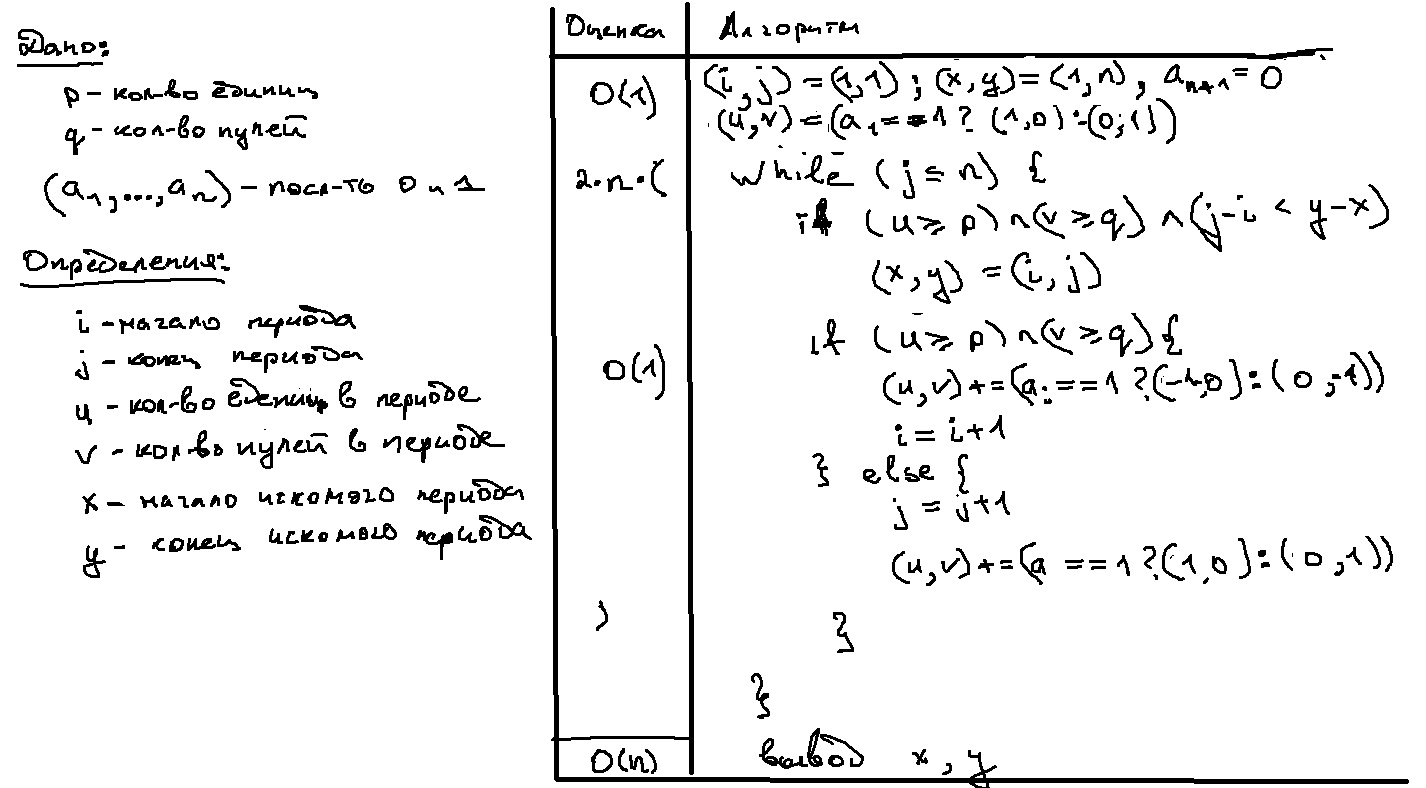 Дано:
p - кол-во единиц
q - кол-во нулей
(a₁,...,aₙ) - посл-ть 0 и 1
Определения:
i - начало периода
j - конец периода
u - кол-во едениц в периоде
v - кол-во нулей в периоде
x - начало искомого периода
y - конец искомого периода
Оценка Алгоритм
O(1) (i,j) = (1,1); (x,y) = (1,n), aₙ₊₁ = 0
(u,v) = (a₁ == 1 ? (1,0) : (0;1))
2·n·( while (j ≤ n) {
if (u ≥ p) ∧ (v ≥ q) ∧ (j-i < y-x)
(x,y) = (i,j)
if (u ≥ p) ∧ (v ≥ q) {
O(1) (u,v) += (aᵢ == 1 ? (-1,0) : (0,-1))
i = i+1
} else {
j = j+1
(u,v) += (a == 1 ? (1,0) : (0,1))
) }
}
O(n) вывод x, y